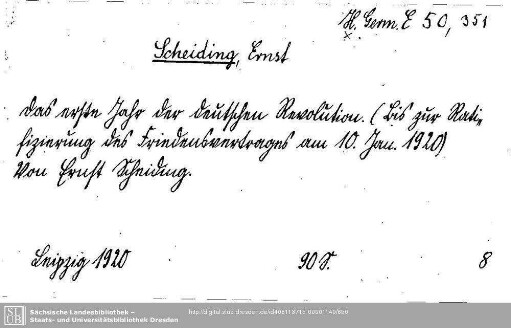 H. Germ. E 50, 351
Scheiding, Ernst
Das erste Jahr der deutschen Revolution. (Bis zur Rati-
fizierung des Friedensvertrages am 10. Jan. 1920)
Von Ernst Scheiding.
Leipzig 1920 90 S. 8
SLUB Sächsische Landesbibliothek –
Staats- und Universitätsbibliothek Dresden